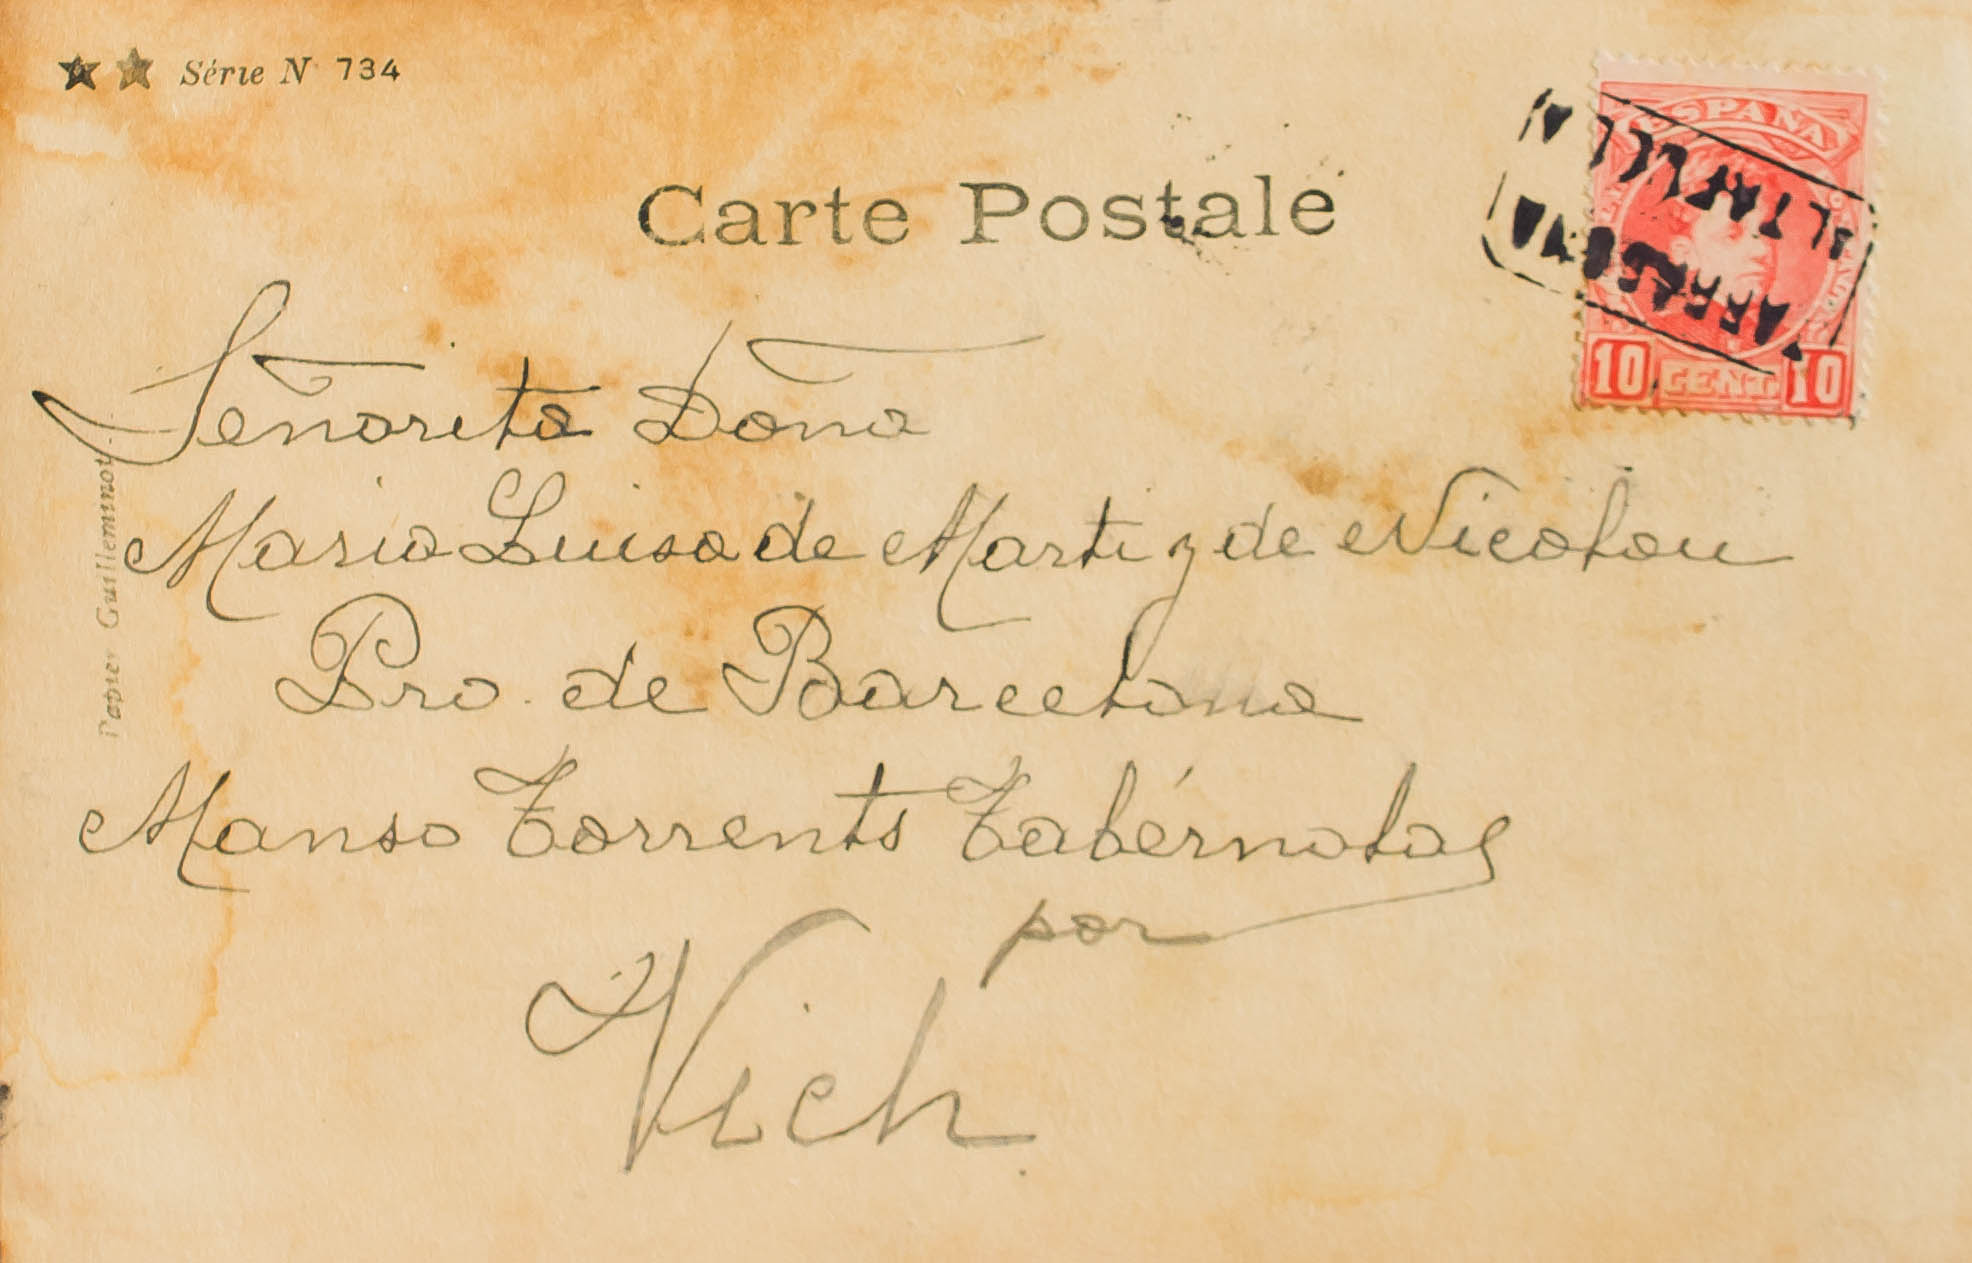 Série N 734
Carte Postale
ESPAÑA
ALTAFULLA
TARRAGONA
10 CENT. 10
Señorita Doña
Maria Luisa de Marti y de Nicolau
Pro. de Barcelona
Manso Torrents Tabérnolas
por
Vich
Papier Guilleminot